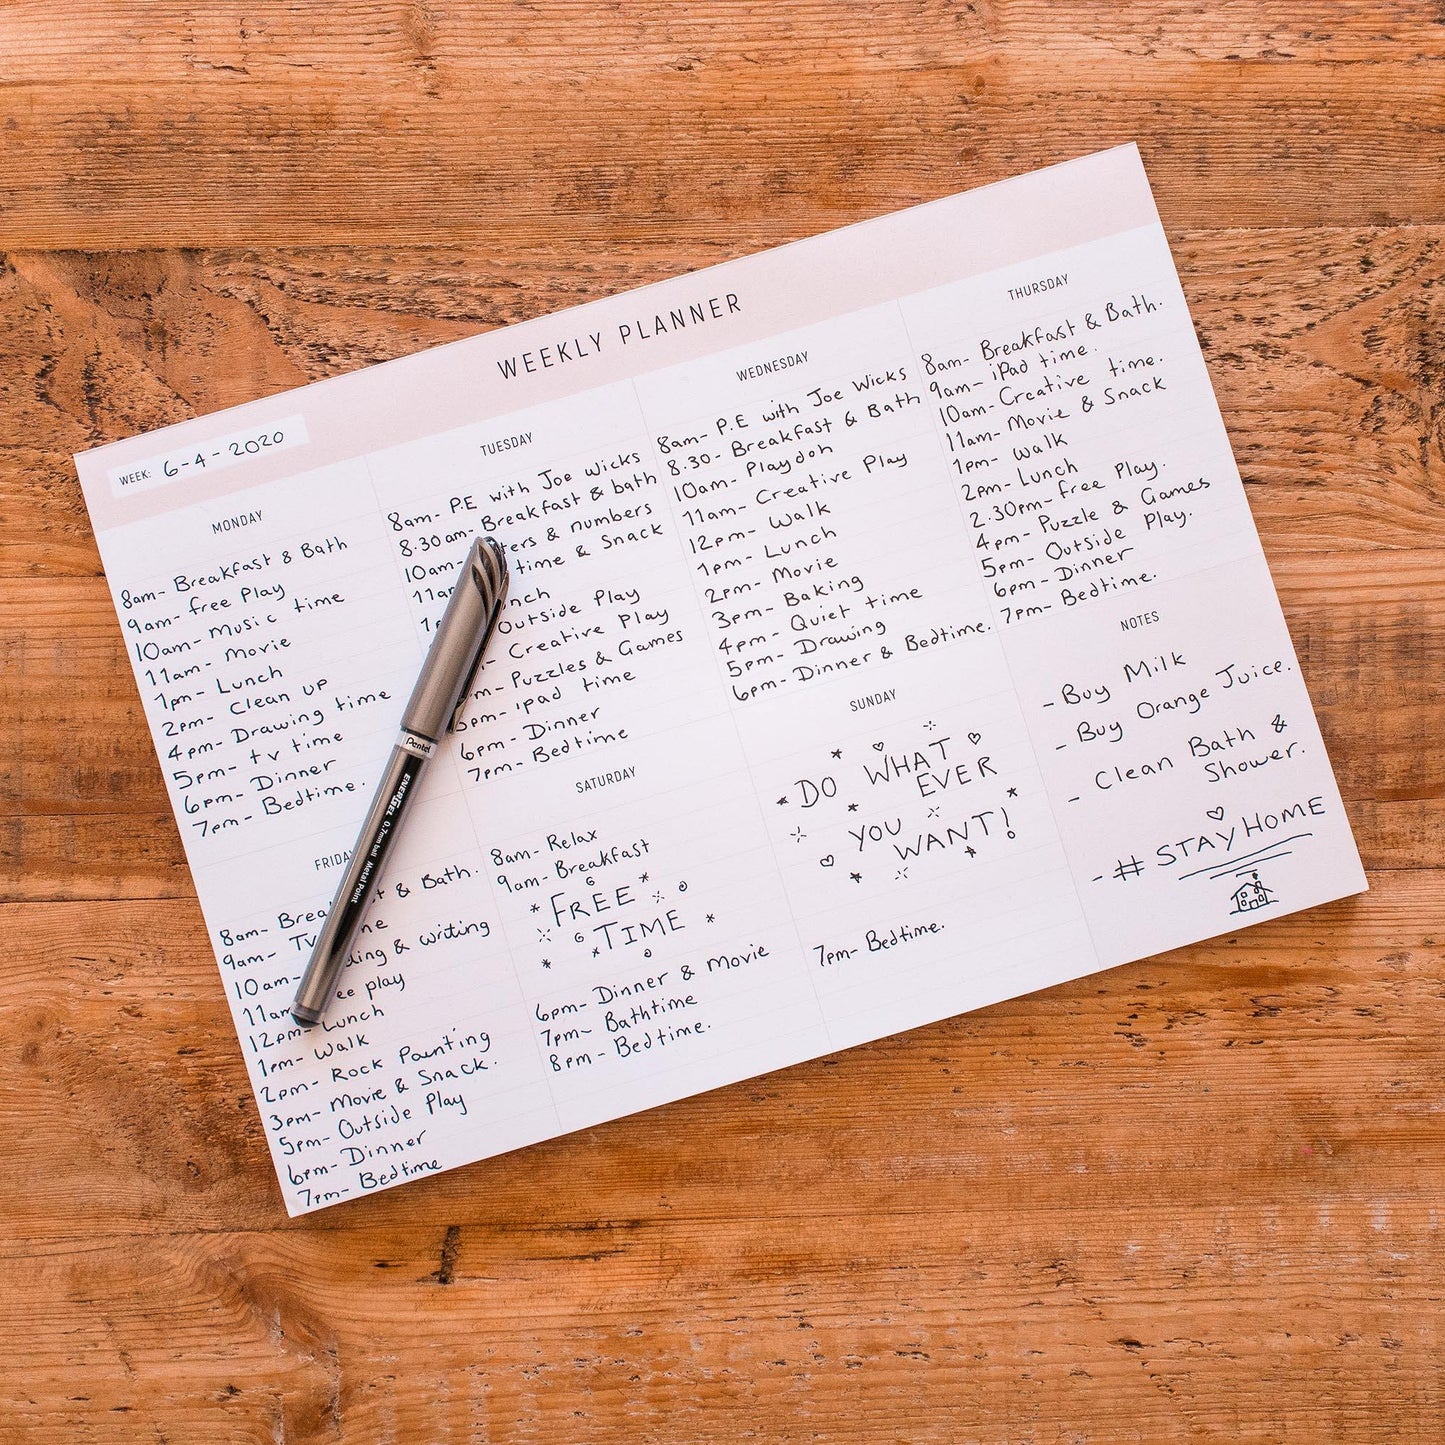 WEEKLY PLANNER
WEEK: 6-4-2020
MONDAY
8am- Breakfast & Bath
9am- free Play
10am- Music time
11am- Movie
1pm- Lunch
2pm- Clean up
4pm- Drawing time
5pm- tv time
6pm- Dinner
7pm- Bedtime.
TUESDAY
8am- P.E with Joe Wicks
8.30am- Breakfast & bath
10am- & numbers
time & Snack
Outside Play
Creative Play
Puzzles & Games
ipad time
6pm- Dinner
7pm- Bedtime
WEDNESDAY
8am- P.E with Joe Wicks
8.30- Breakfast & Bath
10am- Playdoh
11am- Creative Play
12pm- Walk
1pm- Lunch
2pm- Movie
3pm- Baking
4pm- Quiet time
5pm- Drawing
6pm- Dinner & Bedtime.
THURSDAY
8am- Breakfast & Bath.
9am- iPad time.
10am- Creative time.
11am- Movie & Snack
1pm- Walk
2pm- Lunch
2.30pm- free Play.
4pm- Puzzle & Games
5pm- Outside Play.
6pm- Dinner
7pm- Bedtime.
8am- & Bath.
9am-
10am- & writing
play
12pm- Lunch
1pm- Walk
2pm- Rock Painting
3pm- Movie & Snack.
5pm- Outside Play
6pm- Dinner
7pm- Bedtime
SATURDAY
8am- Relax
9am- Breakfast
FREE
TIME
6pm- Dinner & Movie
7pm- Bathtime
8pm- Bedtime.
SUNDAY
DO WHAT
EVER
YOU
WANT!
7pm- Bedtime.
NOTES
- Buy Milk
- Buy Orange Juice.
- Clean Bath &
Shower.
- # STAYHOME
Pentel
ENERGEL 0.7mm ball Metal Point